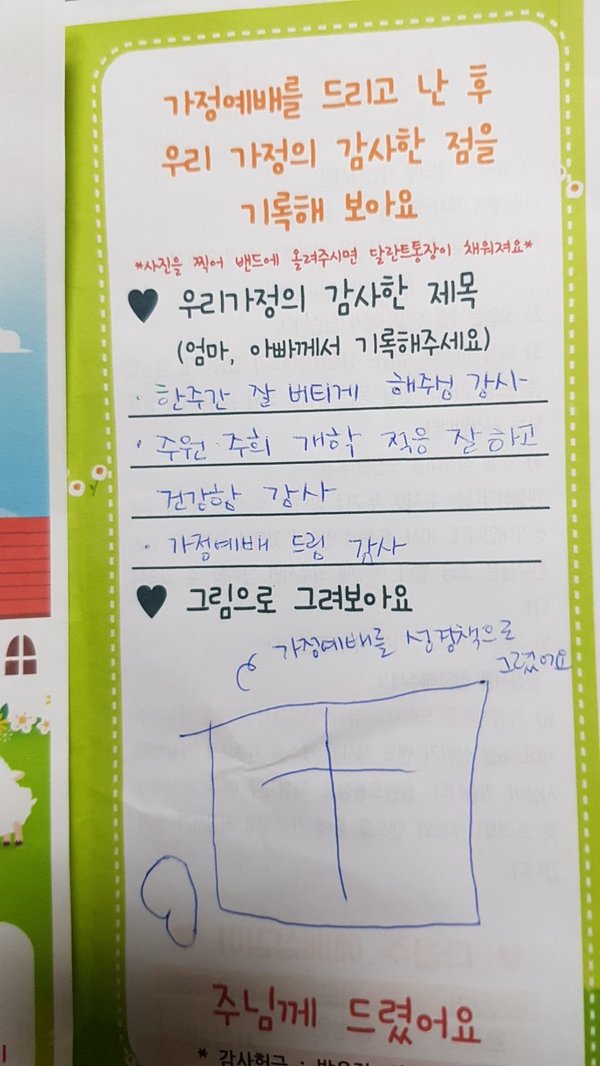 가정예배를 드리고 난 후
우리 가정의 감사한 점을
기록해 보아요
*사진을 찍어 밴드에 올려주시면 달란트통장이 채워져요*
♥ 우리가정의 감사한 제목
(엄마, 아빠께서 기록해주세요)
· 한주간 잘 버티게 해주심 감사
· 주원·주희 개학 적응 잘 하고
건강함 감사
· 가정예배 드림 감사
♥ 그림으로 그려보아요
가정예배를 성경책으로
그렸어요
주님께 드렸어요
* 감사헌금 :